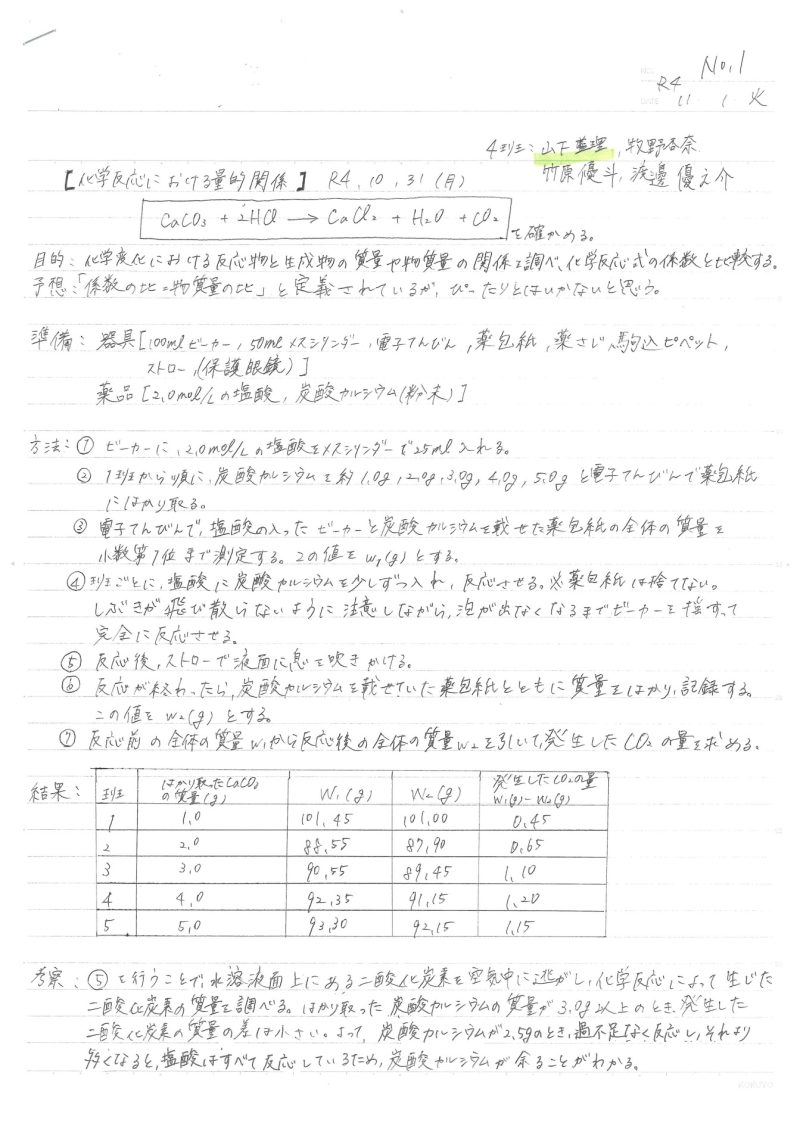 No.1
R4
DATE 11 . 1 . 火
4班: 山下 , 牧野杏奈
竹原優斗, 渡邊 優之介
【化学反応における量的関係】 R4, 10, 31 (月)
CaCO₃ + 2HCl → CaCl₂ + H₂O + CO₂ を確かめる。
目的: 化学変化における反応物と生成物の質量や物質量の関係を調べ、化学反応式の係数と比較する。
予想:「係数の比=物質量の比」と定義されているが、ぴったりとはいかないと思う。
準備: 器具[100mlビーカー, 50mlメスシリンダー, 電子てんびん, 薬包紙, 薬さじ, 駒込ピペット,
ストロー,(保護眼鏡)]
薬品[2.0mol/Lの塩酸, 炭酸カルシウム(粉末)]
方法: ① ビーカーに, 2.0mol/Lの塩酸をメスシリンダーで25ml入れる。
② 1班から順に, 炭酸カルシウムを約1.0g, 2.0g, 3.0g, 4.0g, 5.0gと電子てんびんで薬包紙
にはかり取る。
③ 電子てんびんで, 塩酸の入ったビーカーと炭酸カルシウムを載せた薬包紙の全体の質量を
小数第1位まで測定する。この値をw₁(g)とする。
④ 班ごとに, 塩酸に炭酸カルシウムを少しずつ入れ, 反応させる。※薬包紙は捨てない。
しぶきが飛び散らないように注意しながら, 泡が出なくなるまでビーカーを揺すって
完全に反応させる。
⑤ 反応後, ストローで液面に息を吹きかける。
⑥ 反応が終わったら, 炭酸カルシウムを載せていた薬包紙とともに質量をはかり, 記録する。
この値をw₂(g)とする。
⑦ 反応前の全体の質量w₁から反応後の全体の質量w₂を引いて, 発生したCO₂の量を求める。
結果: 班 はかり取ったCaCO₃の質量(g) W₁(g) W₂(g) 発生したCO₂の量 W₁(g)-W₂(g)
1 1.0 101.45 101.00 0.45
2 2.0 88.55 87.90 0.65
3 3.0 90.55 89.45 1.10
4 4.0 92.35 91.15 1.20
5 5.0 93.30 92.15 1.15
考察: ⑤を行うことで, 水溶液面上にある二酸化炭素を空気中に逃がし, 化学反応によって生じた
二酸化炭素の質量を調べる。はかり取った炭酸カルシウムの質量が3.0g以上のとき, 発生した
二酸化炭素の質量の差は小さい。よって, 炭酸カルシウムが2.5gのとき, 過不足なく反応し, それより
多くなると, 塩酸はすべて反応しているため, 炭酸カルシウムが余ることがわかる。
KOKUYO